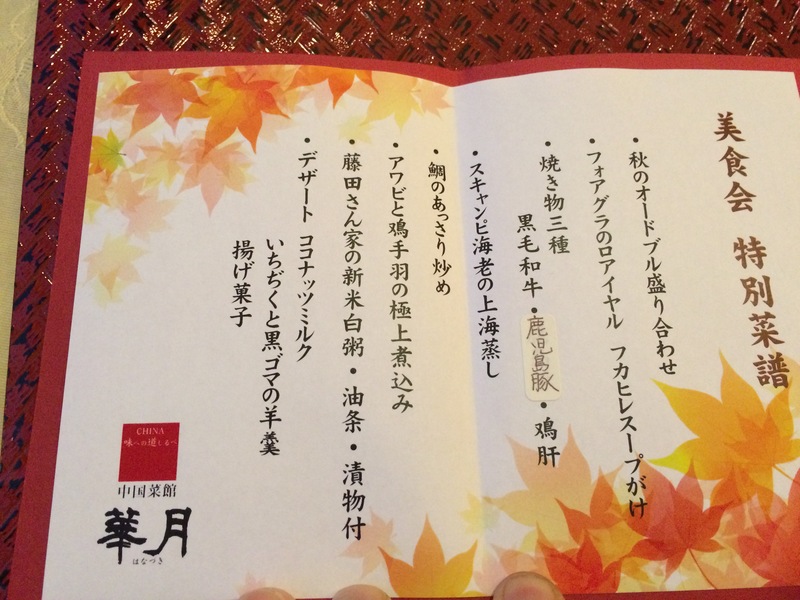 美食会 特別菜譜
・秋のオードブル盛り合わせ
・フォアグラのロアイヤル フカヒレスープがけ
・焼き物三種
黒毛和牛・鹿児島豚・鶏肝
・スキャンピ海老の上海蒸し
・鯛のあっさり炒め
・アワビと鶏手羽の極上煮込み
・藤田さん家の新米白粥・油条・漬物付
・デザート ココナッツミルク
いちぢくと黒ゴマの羊羹
揚げ菓子
CHINA
味への道しるべ
中国菜館
華月
はなづき